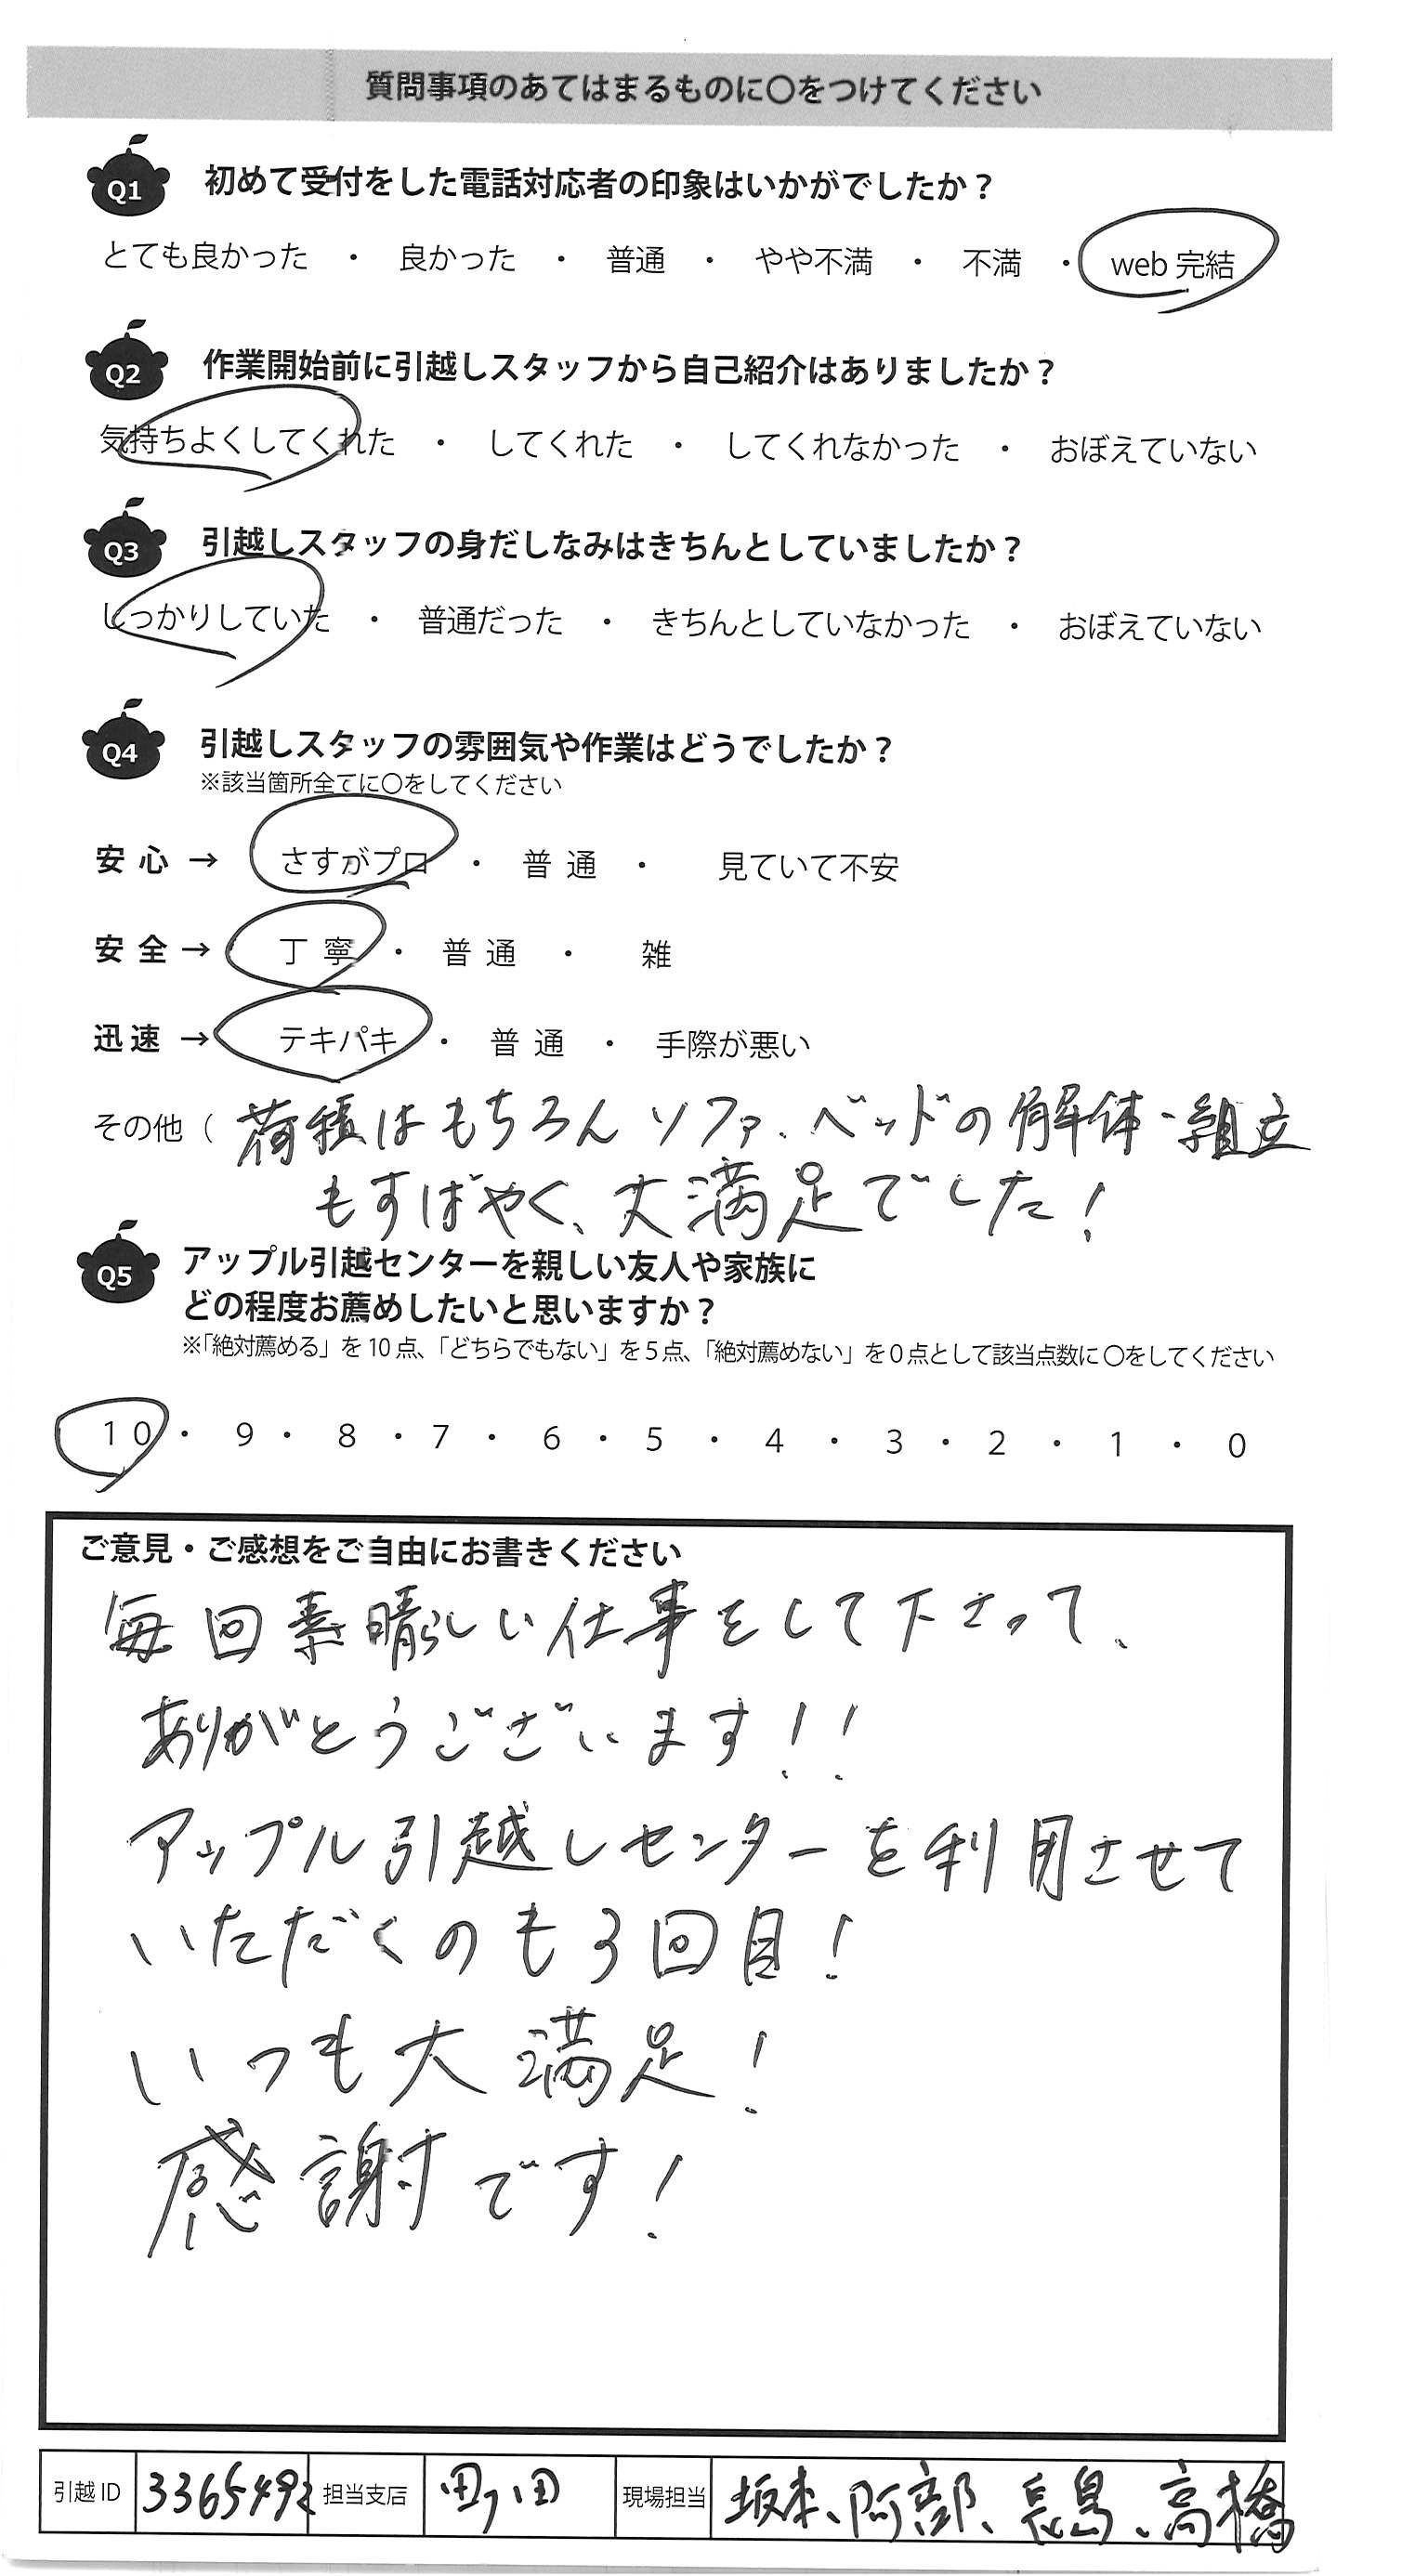 質問事項のあてはまるものに〇をつけてください
Q1 初めて受付をした電話対応者の印象はいかがでしたか？
とても良かった ・ 良かった ・ 普通 ・ やや不満 ・ 不満 ・ web 完結
Q2 作業開始前に引越しスタッフから自己紹介はありましたか？
気持ちよくしてくれた ・ してくれた ・ してくれなかった ・ おぼえていない
Q3 引越しスタッフの身だしなみはきちんとしていましたか？
しっかりしていた ・ 普通だった ・ きちんとしていなかった ・ おぼえていない
Q4 引越しスタッフの雰囲気や作業はどうでしたか？
※該当箇所全てに〇をしてください
安心 → さすがプロ ・ 普通 ・ 見ていて不安
安全 → 丁寧 ・ 普通 ・ 雑
迅速 → テキパキ ・ 普通 ・ 手際が悪い
その他 （ 荷積はもちろんソファ、ベッドの解体・組立
もすばやく、大満足でした！
Q5 アップル引越センターを親しい友人や家族に
どの程度お薦めしたいと思いますか？
※「絶対薦める」を 10 点、「どちらでもない」を 5 点、「絶対薦めない」を 0 点として該当点数に 〇をしてください
10 ・ 9 ・ 8 ・ 7 ・ 6 ・ 5 ・ 4 ・ 3 ・ 2 ・ 1 ・ 0
ご意見・ご感想をご自由にお書きください
毎回素晴らしい仕事をして下さって、
ありがとうございます！！
アップル引越しセンターを利用させて
いただくのも3回目！
いつも大満足！
感謝です！
引越 ID 担当支店 町田 現場担当 坂本、阿部、長島、高橋